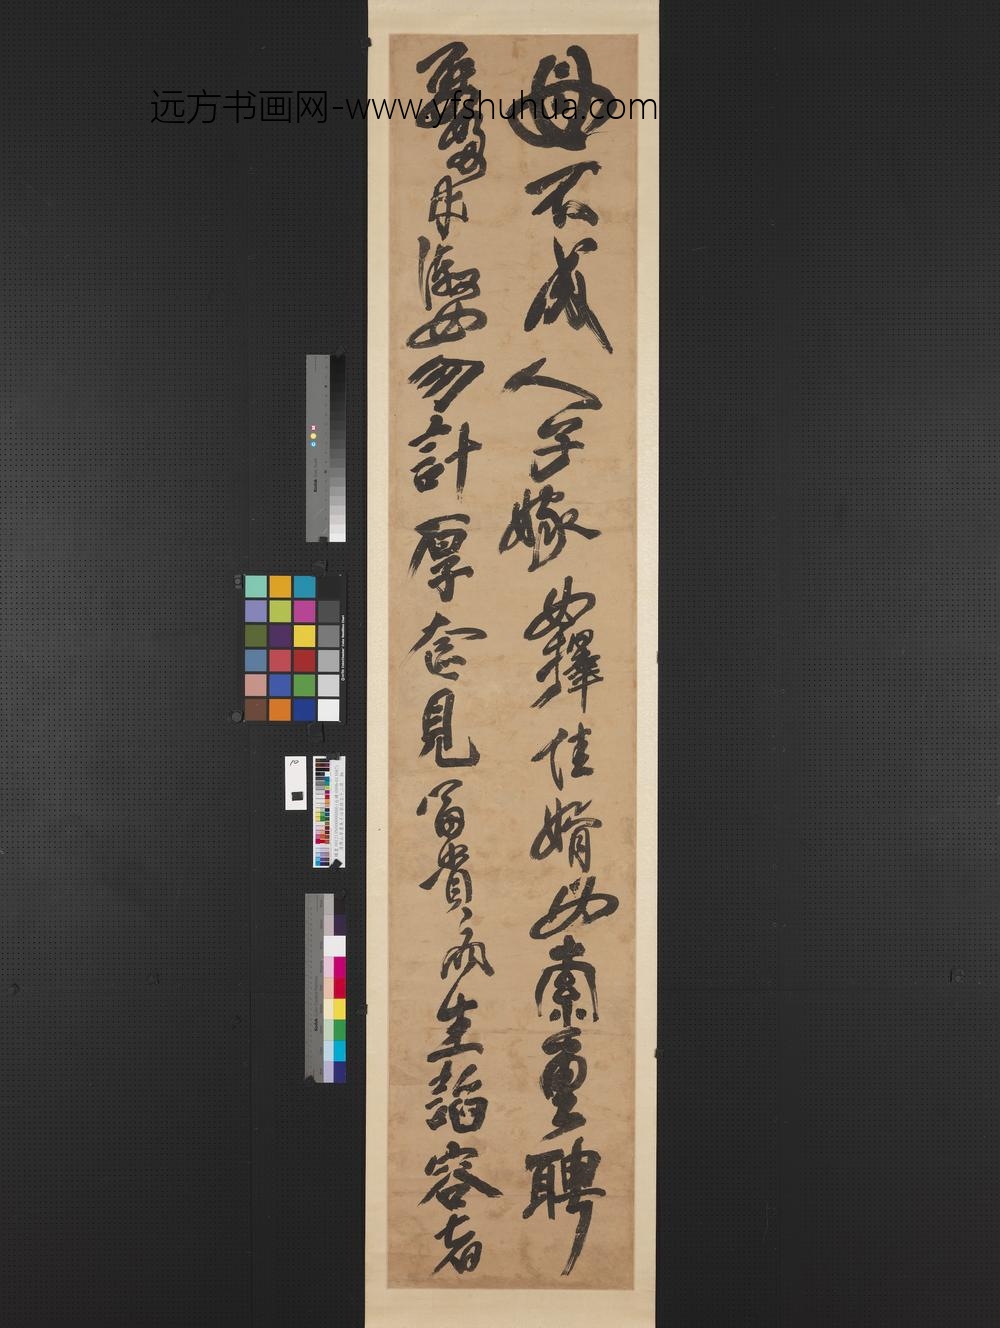 远方书画网-www.yfshuhua.com
母不成人子嫁女擇佳婿毋索重聘
娶媳求淑女勿計厚奩見富貴而生諂容者